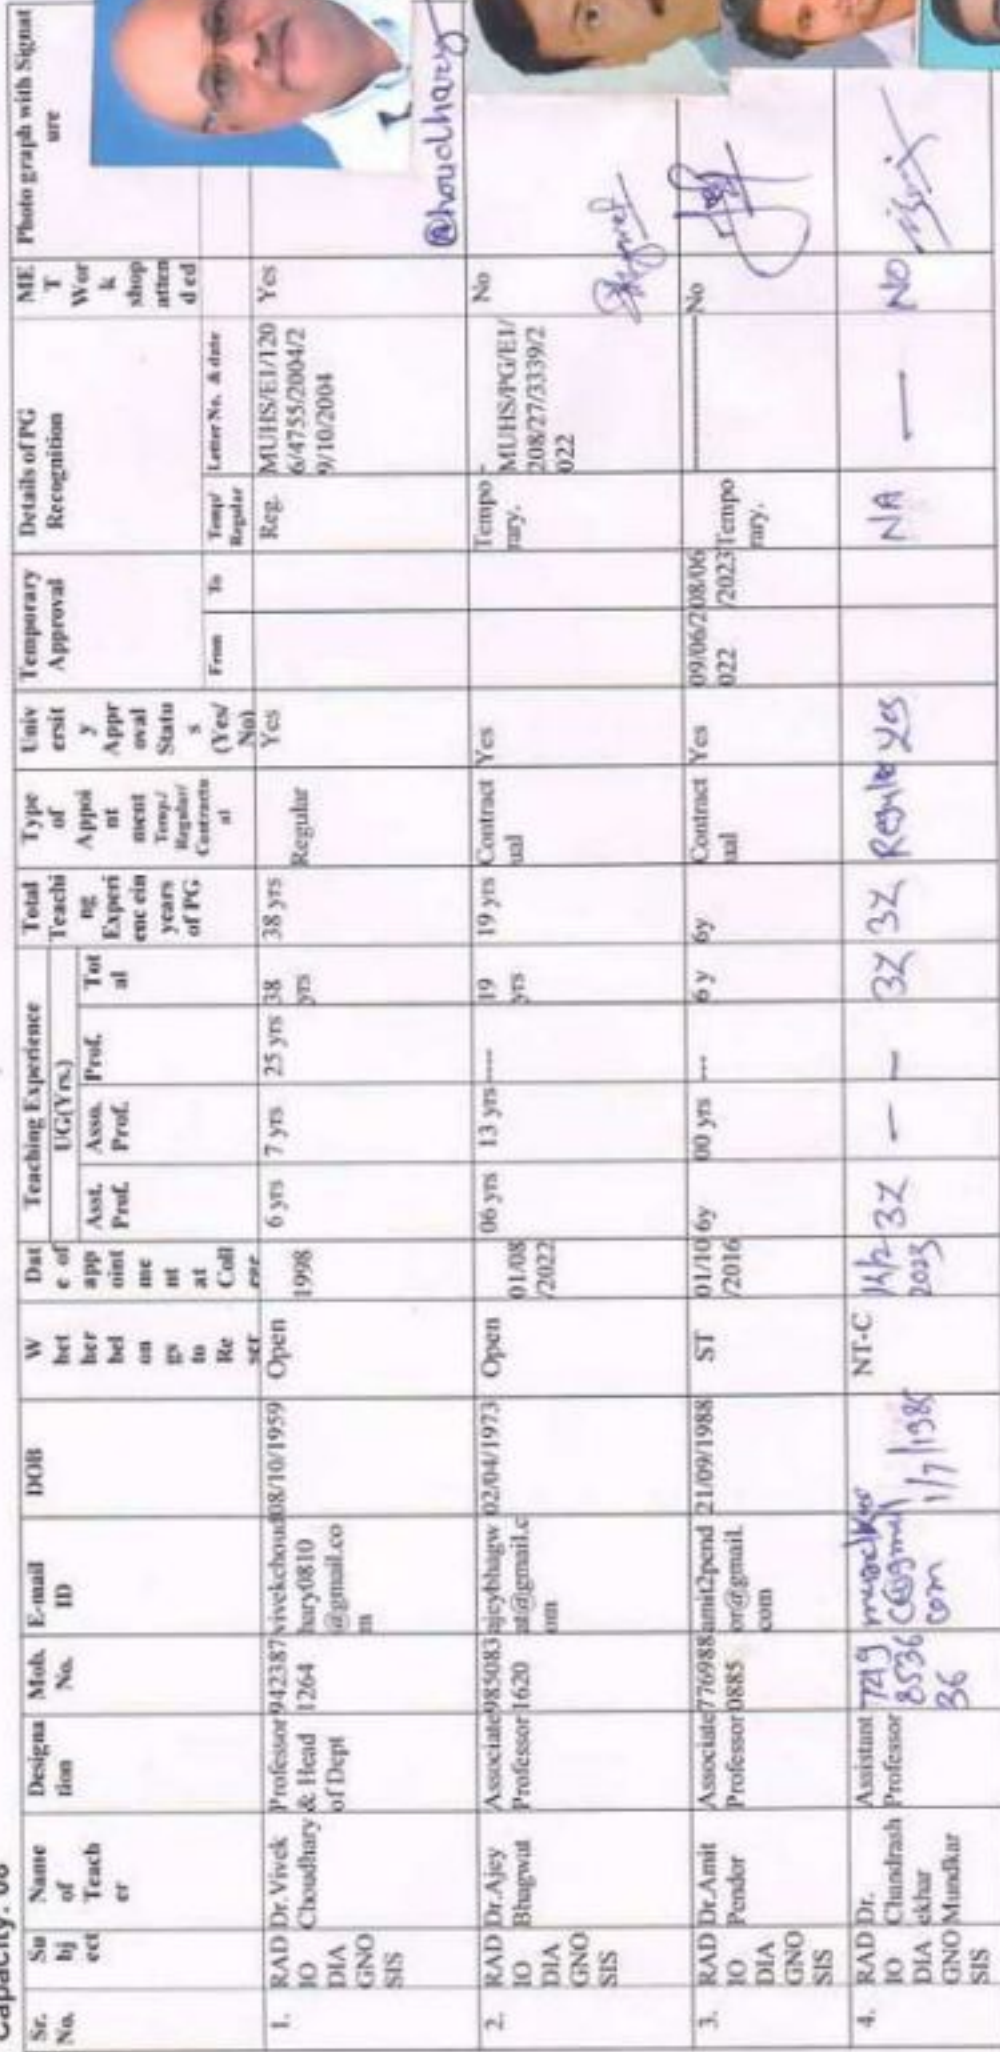 Capacity: 06
Sr. No.
Su bj ect
Name of Teach er
Designa tion
Mob. No.
E-mail ID
DOB
W het her bel on gs to Re ser
Dat e of app oint me nt at Coll ege
Teaching Experience
UG(Yrs.)
Asst. Prof.
Asso. Prof.
Prof.
Tot al
Total Teachi ng Experi enc ein years of PG
Type of Appoi nt ment Temp./ Regular/ Contractu al
Univ ersit y Appr oval Statu s (Yes/ No)
Temporary Approval
From
To
Details of PG Recognition
Temp/ Regular
Letter No. & date
ME T Wor k shop atten d ed
Photo graph with Signat ure
1.
RAD IO DIA GNO SIS
Dr. Vivek Choudhary
Professor & Head of Dept
942387 1264
vivekchoud hary0810 @gmail.co m
08/10/1959
Open
1998
6 yrs
7 yrs
25 yrs
38 yrs
38 yrs
Regular
Yes
Reg.
MUHS/E1/120 6/4755/2004/2 9/10/2004
Yes
Choudhary
2.
RAD IO DIA GNO SIS
Dr. Ajey Bhagwat
Associate Professor
985083 1620
ajeybhagw at@gmail.c om
02/04/1973
Open
01/08 /2022
06 yrs
13 yrs
----
19 yrs
19 yrs
Contract ual
Yes
Tempo rary.
- MUHS/PG/E1/ 208/27/3339/2 022
No
3.
RAD IO DIA GNO SIS
Dr. Amit Pendor
Associate Professor
776988 0885
amit2pend or@gmail. com
21/09/1988
ST
01/10 /2016
6y
00 yrs
---
6 y
6y
Contract ual
Yes
09/06/2 022
08/06 /2023
Tempo rary.
--------------------
No
4.
RAD IO DIA GNO SIS
Dr. Chandrash ekhar Mundkar
Assistant Professor
7219 8536 36
c@gmail com
1/7/1985
NT-C
2023
3Y
—
—
3Y
3Y
Regular
Yes
NA
—
NO